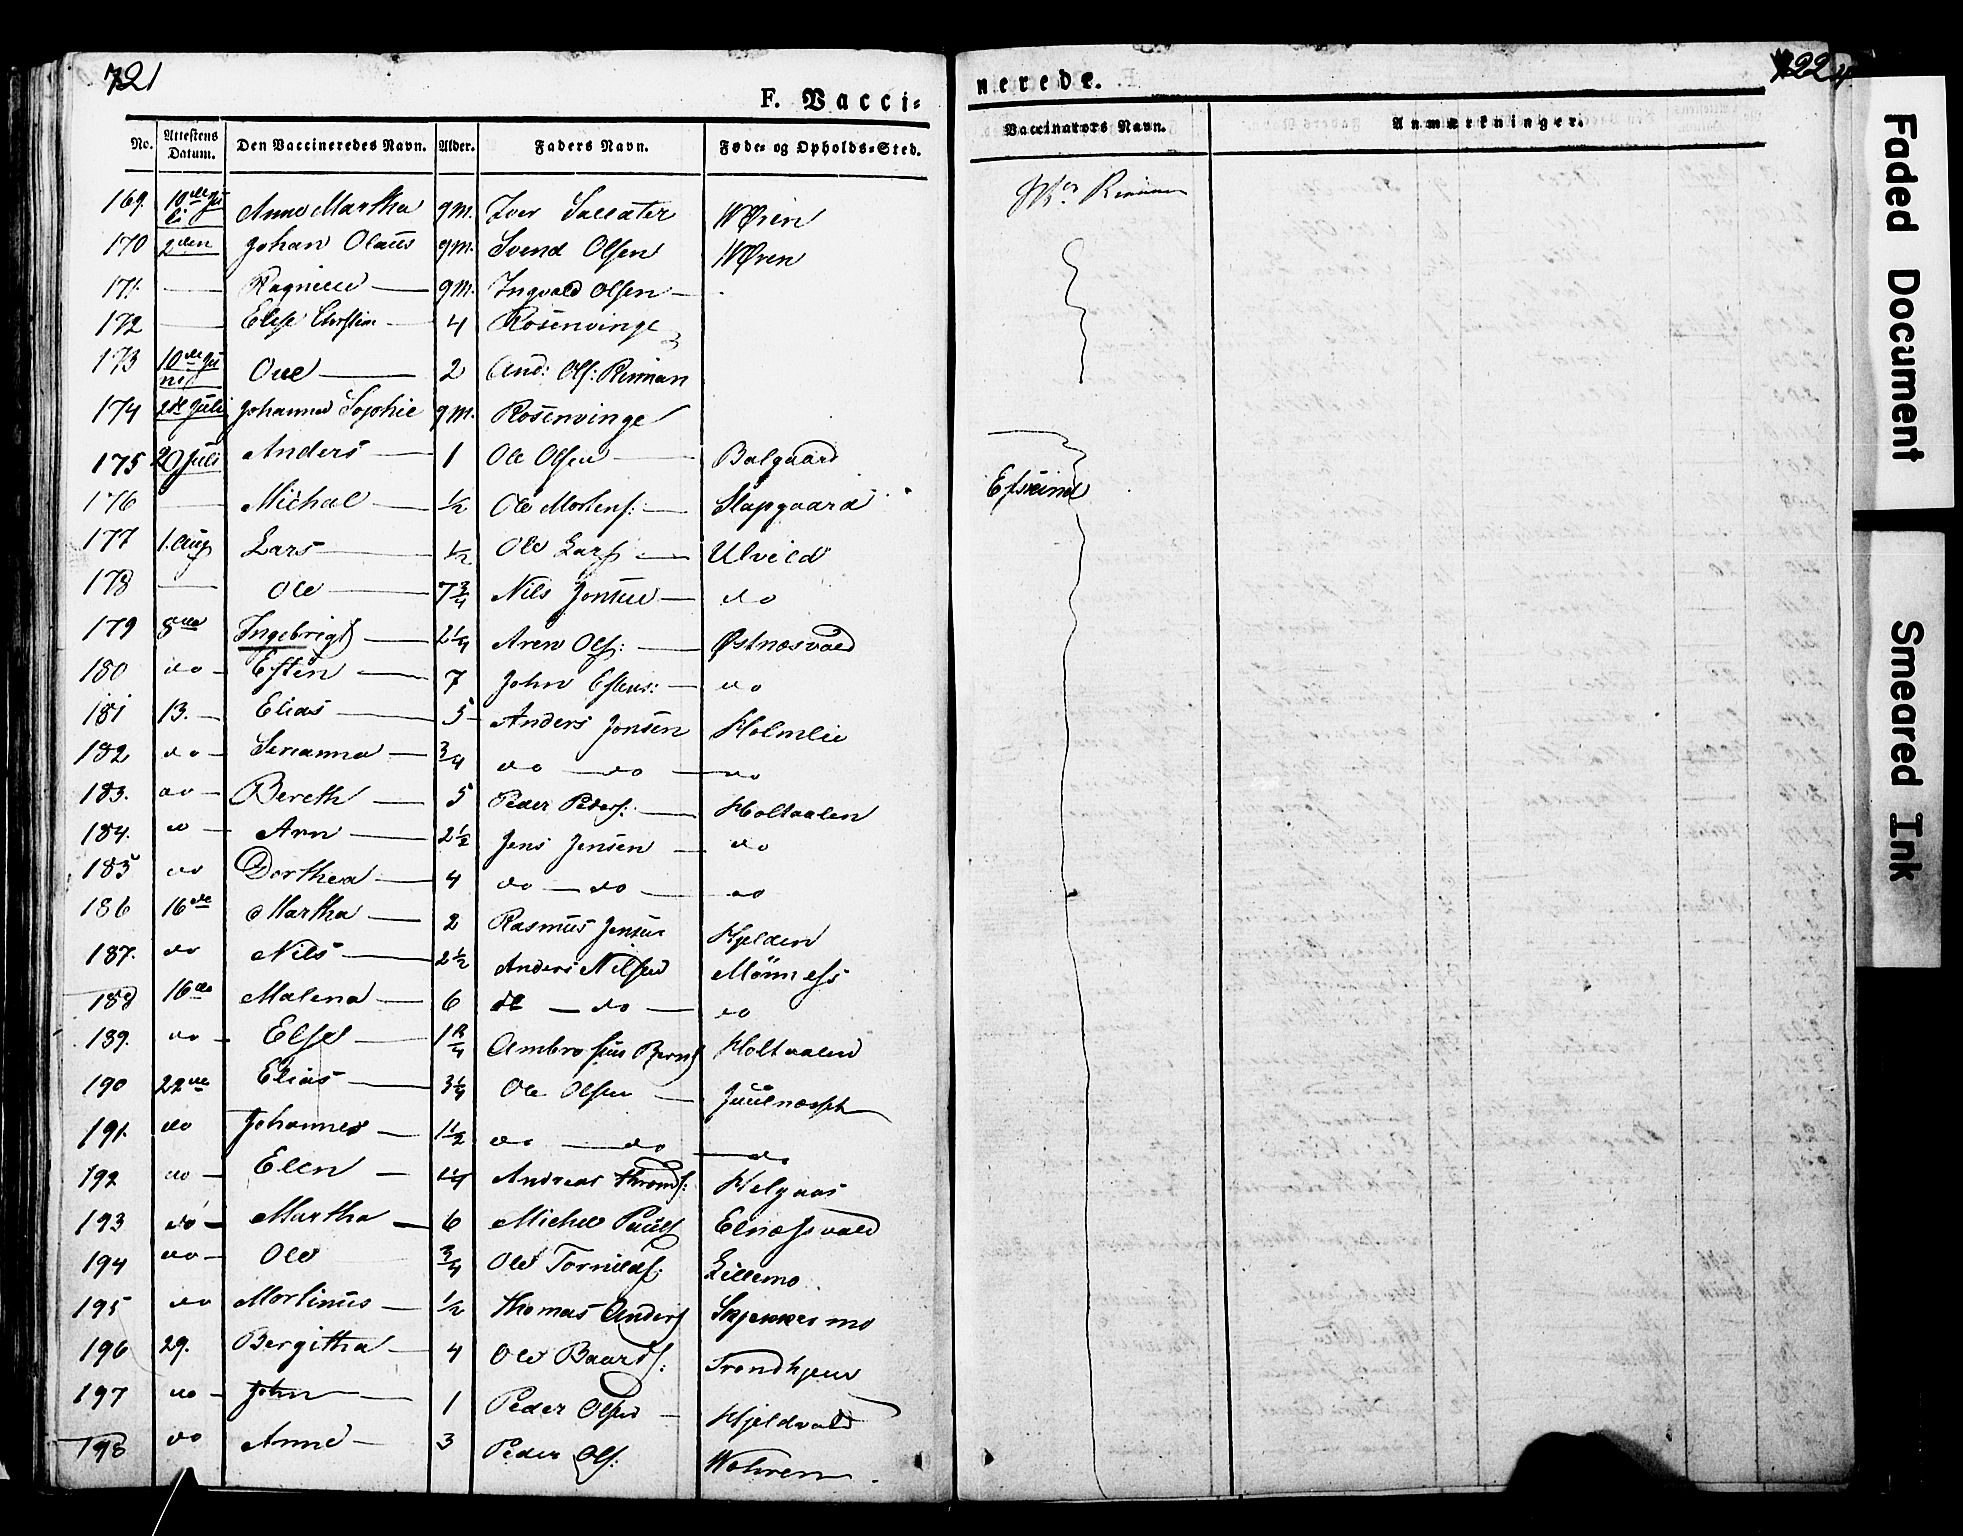 721
F. Vacci-
No. Attestens Datum. Den Vaccineredes Navn. Alder. Faders Navn. Føde- og Opholds-Sted.
169. 10de Juli Anne Martha 9 M. Iver Sallater WØren
170 2den Johan Olaus 9 M. Svend Olsen WØren
171. — 9 M. Ingvald Olsen —
172 — Elise 4 Rosenvinge
173 10de Juni Ole — 2 And: Ols: Riiman
174 2de Juli Johanna Sophie 9 M. Rosenvinge
175 20 Juli Anders — 1 Ole Olsen — Balgaard
176 — Michal — 1/2 Ole Mortens: — Slapgaard
177 1. Aug Lars — 1/2 Ole Lars — Ulvild
178 — Ole — 7 3/4 Nils Jonsen — do
179 8de Ingebrigt — 2 1/4 Aren Ols: — Østnæsvold
180 do — Esten — 7 John Estens: — do
181 13. — Elias — 5 Anders Jonsen Holmlie
182 do — Serianna — 3/4 do — do — do
183. do — Bereth — 5 Peder Peders: — Holtaalen
184. do — Arn — 2 1/2 Jens Jensen — do
185 do Dorthea — 4 do — do — do
186 16de Martha — 2 Rasmus Jensen Kjelden
187. do Nils — 2 1/2 Anders Nilsen
188 16de Malena — 6 do — do — do
189. do — Else — 1 3/4 Ambrosius Bernt Holtaalen
190 22de Elias — 3 1/4 Ole Olsen — Juulnæsset
191. do Johannes — 1 1/2 do — do — do
192 do — Elen — 1/4 Andreas Thronds: Helgaas
193 do — Martha — 6 Michel Pauls Elnæsvold
194 do — Ole 3/4 Ole Lillemo
195 do Mortinus — 1/2 Thomas Anders Skjekkermo
196 29. Bergitha — 4 Ole Baards: Trondhjem
197 do — John — 1 Peder Olsen — Hjeldvold
198 do Anne — 3 Peder Ols: Wohren
nerede.
722
Vaccinators Navn. Anmærkninger.
Riiman
Estsind
Faded Document
Smeared Ink